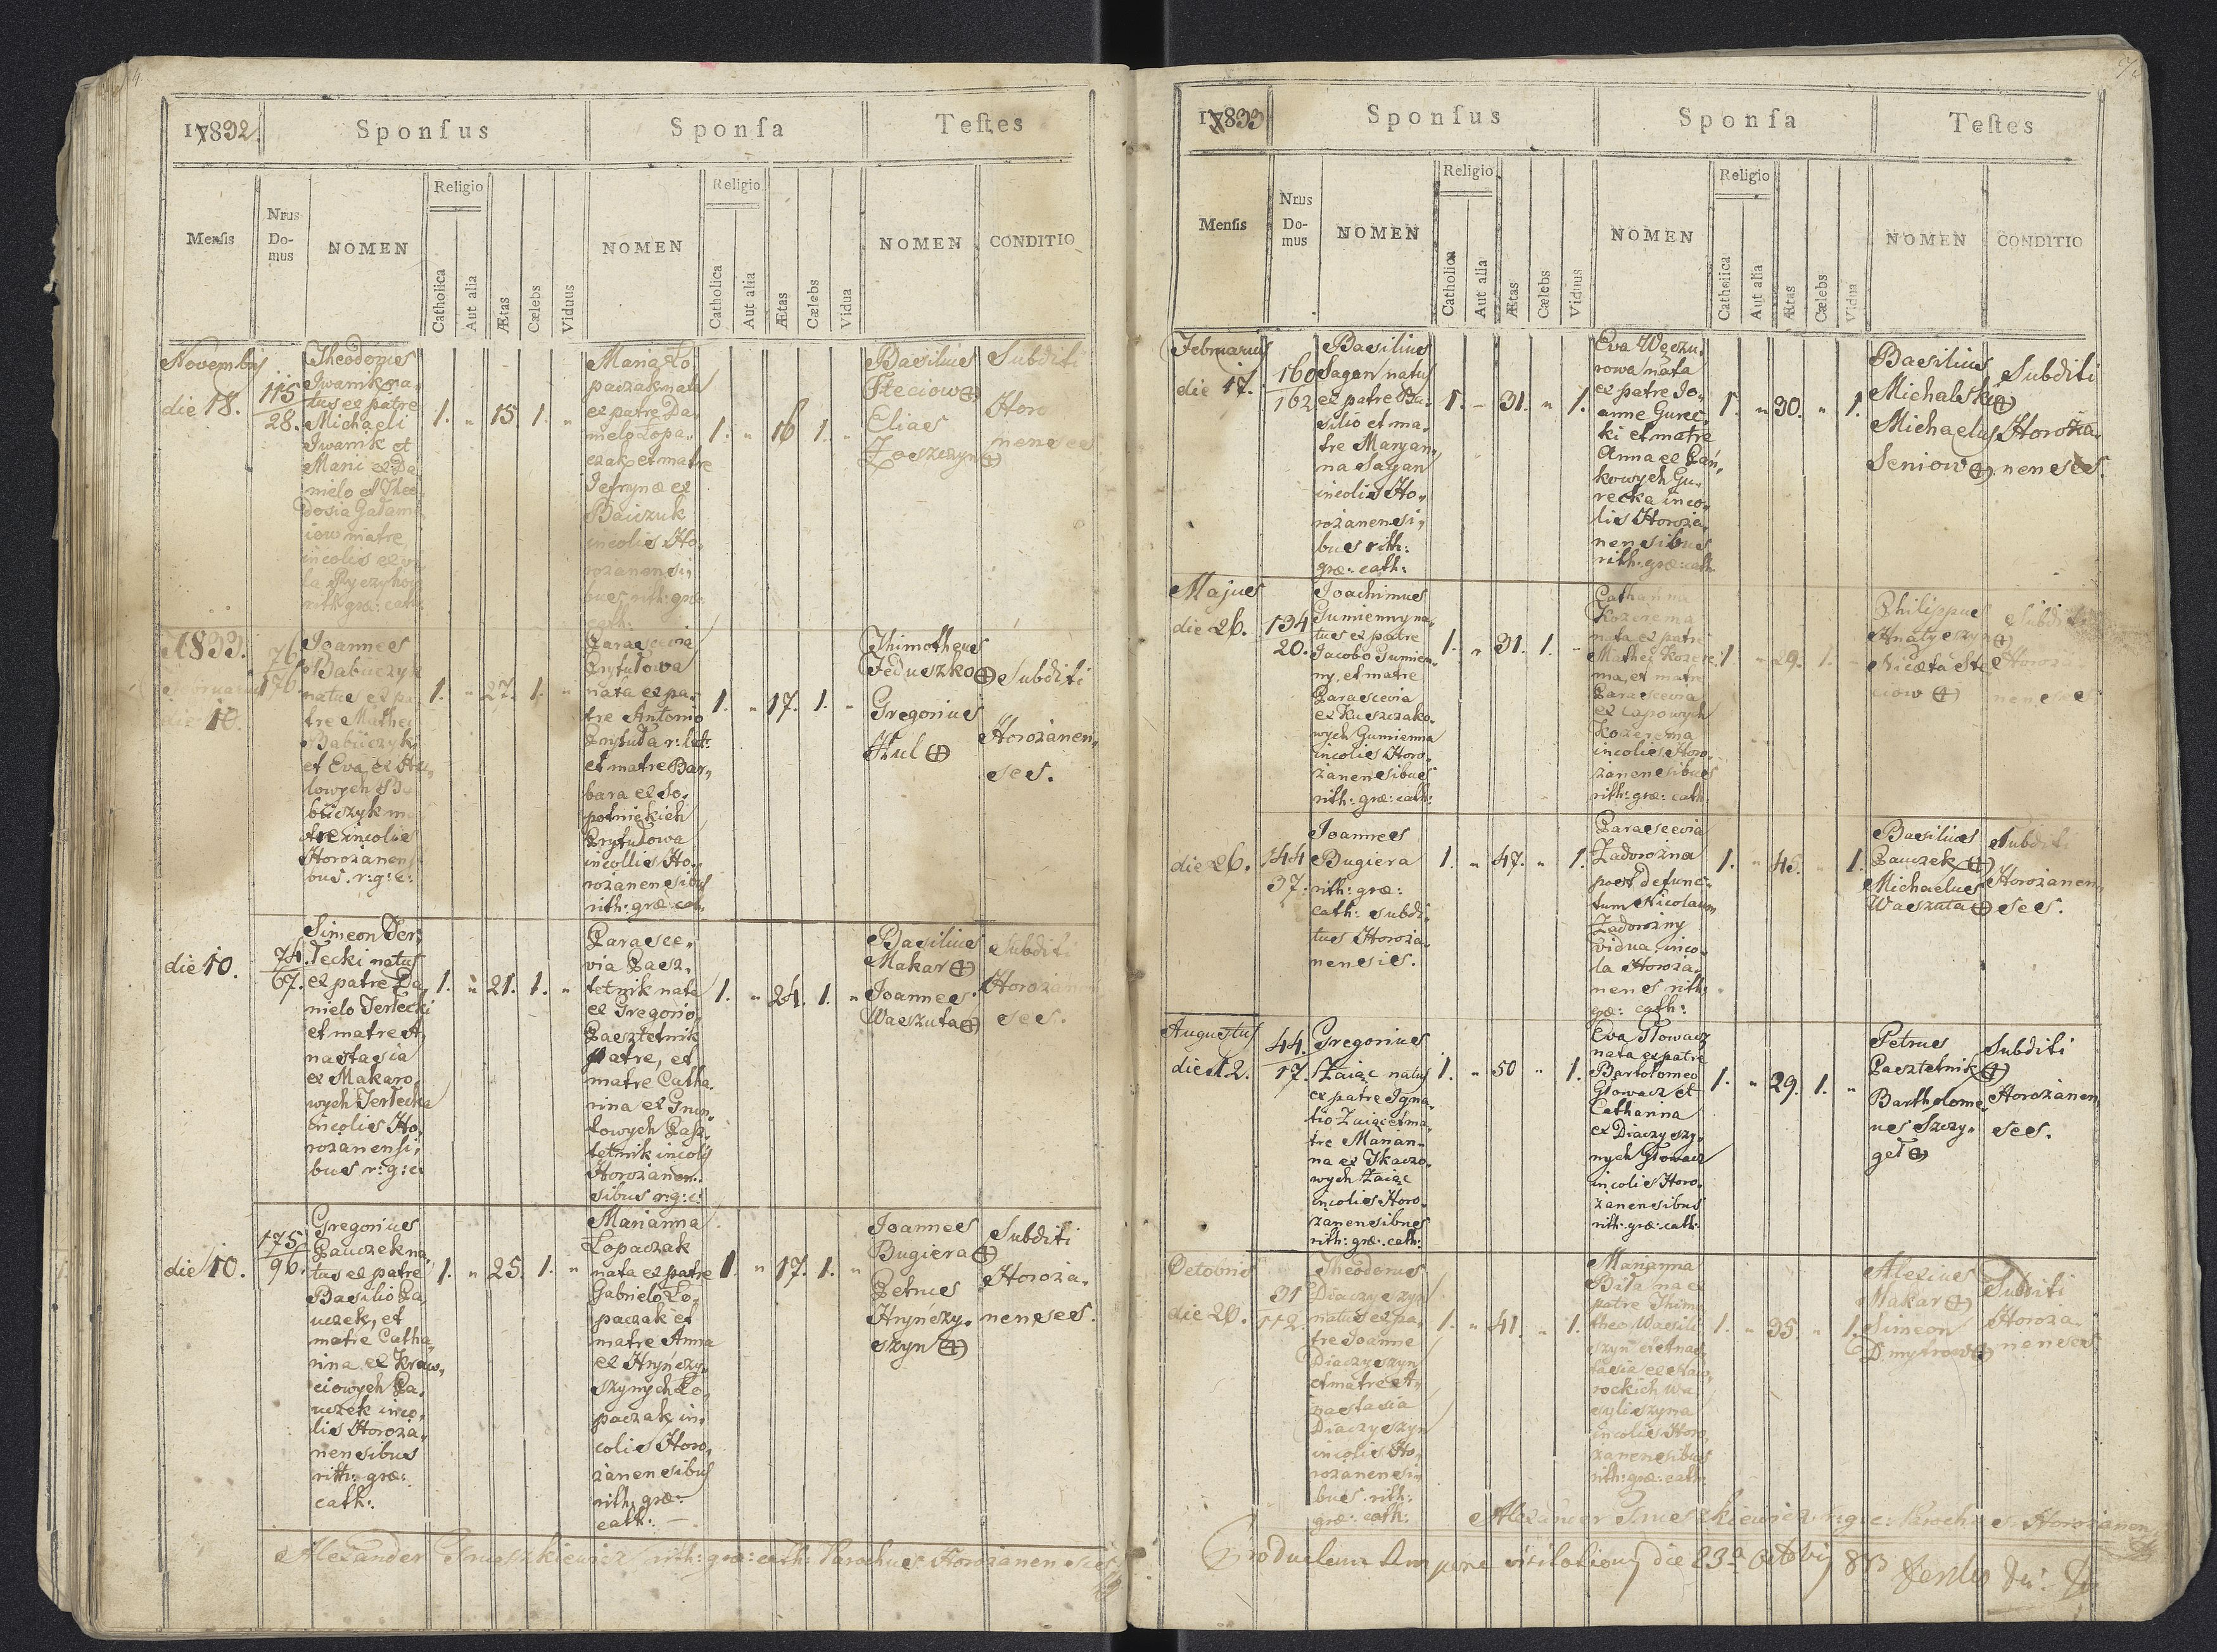 4.
17832.
Sponſus
Sponſa
Teſtes
Menſis
Nrus Do-mus
NOMEN
Religio
Catholica
Aut alia
Ætas
Cælebs
Viduus
NOMEN
Religio
Catholica
Aut alia
Ætas
Cælebs
Vidua
NOMEN
CONDITIO
Novembris
die 18.
115
28.
Theodorus
Iwanik na,
tus ex patre
Michaeli
Iwanik et
Marii ex Da
nielo et Theo
dosia
iow matre,
incolis ex vi
la Ryczyhow
rith: græ: cath:
1. " 15. 1. "
Maria Ło
paczak nata
ex patre Da,
nielo Łopa,,
czak et matre
Jefrynæ ex
Baiczuk
incolis Ho,
rożanensi,
bus rith: græ:
cath:
1. " 16 1. "
Basilius
Steciow
Elias
Zoszczyn
Subditi
Horo
nenses
1833.
Februarius
die 10.
76
170.
Joannes
Babiiczyk
natus ex pa
tre Mathei
Babiiczyk
et Eva ex Hu,
lowych Ba
biiczyk ma
tre incolis
Horożanensi
bus. r: g: c:
1. " 27. 1. "
Parascevia
Prytułowa
nata ex pa,
tre Antonio
Prytuła r: lat:
et matre Bar,,
bara ex So,
potnickich
Prytułowa
incollis Ho,,
rożanensibus
rith: græ: cat,
1. " 17. 1. "
Thimotheus
Feduszko
Gregorius
Hul
Subditi
Horożanen,
ses.
die 10.
74.
67.
Simeon Ter,
łecki natus
ex patre Da,
nielo Terłecki
et matre A,
nastasia
ex Makaro,
wych Terłecka
incolis Ho,
rożanensi,
bus r: g: c:
1. " 21. 1. "
Parasce,,
via Pasz,
tetnik nata
ex Gregorio,
Pasztetnik
patre, et
matre Catha,
rina ex Gnin,
łowych Pasz,
tetnik incolis
Horożanen,
sibus r: g: c:
1. " 24. 1. "
Basilius
Makar
Joannes
Waszuta
Subditi
Horożanen
ses.
die 10.
175
96.
Gregorius
Pauczek na,
tus ex patre
Basilio Pa,
uczek, et
matre Catha,
rina ex Kraw,,
ciowych Pa,
uczek inco,
lis Horoża,,
nensibus
rith: græ:
cath:
1. " 25. 1. "
Marianna
Łopaczak
nata ex patre
Gabrielo Ło,
paczak et
matre Anna
ex Hryńczy,
szynych Ło,
paczak in,
colis Horo,
żanensibus
rith: græ:
cath:
1. " 17. 1. "
Joannes
Bugiera
Petrus
Hryńczy,
szyn
Subditi
Horoża,
nenses.
Alexander Gruszkiewicz rith: græ: cath: Parochus Horożanensis
17833
Sponſus
Sponſa
Teſtes
Menſis
Nrus Do-mus
NOMEN
Religio
Catholica
Aut alia
Ætas
Cælebs
Viduus
NOMEN
Religio
Catholica
Aut alia
Ætas
Cælebs
Vidua
NOMEN
CONDITIO
Februarius
die 17.
160
162
Basilius
Sagan natus
ex patre Ba,
silio et ma,
tre Maryan,,
na Sagan
incolis Ho,,
rożanensi,,
bus rith:
græ: cath:
1. " 31. " 1.
Eva Węczu,
rowa nata
ex patre Jo,
anne Gurec,
ki et matre
Anna ex Pań,
kowych Gu,
recka inco,
lis Horoża,
nensibus
rith: græ: cath:
1. " 30. " 1.
Basilius
Michalski
Michaelus
Seniow
Subditi
Horoża,
nenses.
Majus
die 26.
134
20.
Joachimus
Gumienny na,
tus ex patre
Jacobo Gumien,
ny, et matre
Parascevia
ex Kuszczako,
wych Gumienna
incolis Horo,
żanensibus
rith: græ: cath:
1. " 31. 1. "
Catharina
Kozerema
nata ex patre
Mathei Kozere,
ma, et matre
Parascevia
ex Capowych
Kozerema
incolis Horo,
żanensibus
rith: græ: cath:
1 " 29. 1. "
Philippus
Hnatyszyn
Nicæta Ste
ciow
Subditi
Horoż
nenses
die 26.
144
37.
Joannes
Bugiera
rith: græ:
cath: subdi,
tus Horoża,
nensis.
1. " 47. " 1.
Parascevia
Zadorożna
post defunc,
tum Nicolaum
Zadorożny
vidua inco,
la Horoża,
nens rith:
græ: cath:
1. " 45. " 1.
Basilius
Pauczek
Michaelus
Waszuta
Subditi
Horożanen,
ses.
Augustus
die 12.
44.
17.
Gregorius
Zaiąc natus
ex patre Igna,
tio Zaiąc et ma,
tre Marian,
na ex Tkaczo,
wych Zaiąc
incolis Horo,
żanensibus
rith: græ: cath:
1. " 50 " 1.
Eva Głowacz
nata ex patre
Bartołomeo
Głowacz et
Catharina
ex Diaczyszy,
nych Głowacz
incolis Horo,
żanensibus
rith: græ: cath:
1. " 29. 1. "
Petrus
Pasztetnik
Bartholome,
us Szczy,
geł
Subditi
Horożanen,
ses.
Octobris
die 20.
31
112.
Theodorus
Diaczyszyn
natus ex pa,
tre Joanne
Diaczyszyn
et matre A,
nastasia
Diaczyszyn
incolis Ho,
rożanensi,
bus rith:
græ: cath:
1. " 41. " 1.
Marianna
Biła na ex
patre Thimo
theo Wasili
szyn et Anas
tasia ex Naw,
rockich Wa
syliszyna
incolis Horo,
żanensibus
rith: græ: cath:
1. " 35. " 1.
Alexius
Makar
Simeon
Dmytrow
Subditi
Horoża,
nenses
Alexander Gruszkiewicz r: g: c: Paroch: Horożanen
Productum tempore visitationis die 23ª Octobris 833